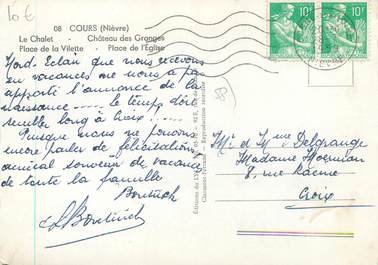 10 €
08 COURS (Nièvre)
Le Chalet - Château des Granges
Place de la Vilette - Place de l'Église
Nord-Eclair que nous recevons
en vacances ne nous a pas
apporté l'annonce de la
naissance ---- le temps doit
sembler long à Croix ! ----
Puisque nous ne pouvons
encore parler de félicitations,
amical souvenir de vacances
de toute la famille
10F
10F
Mr et Mme Delgrange
Madame
8, rue Racine
Croix
Editions du
Reproduction interdite